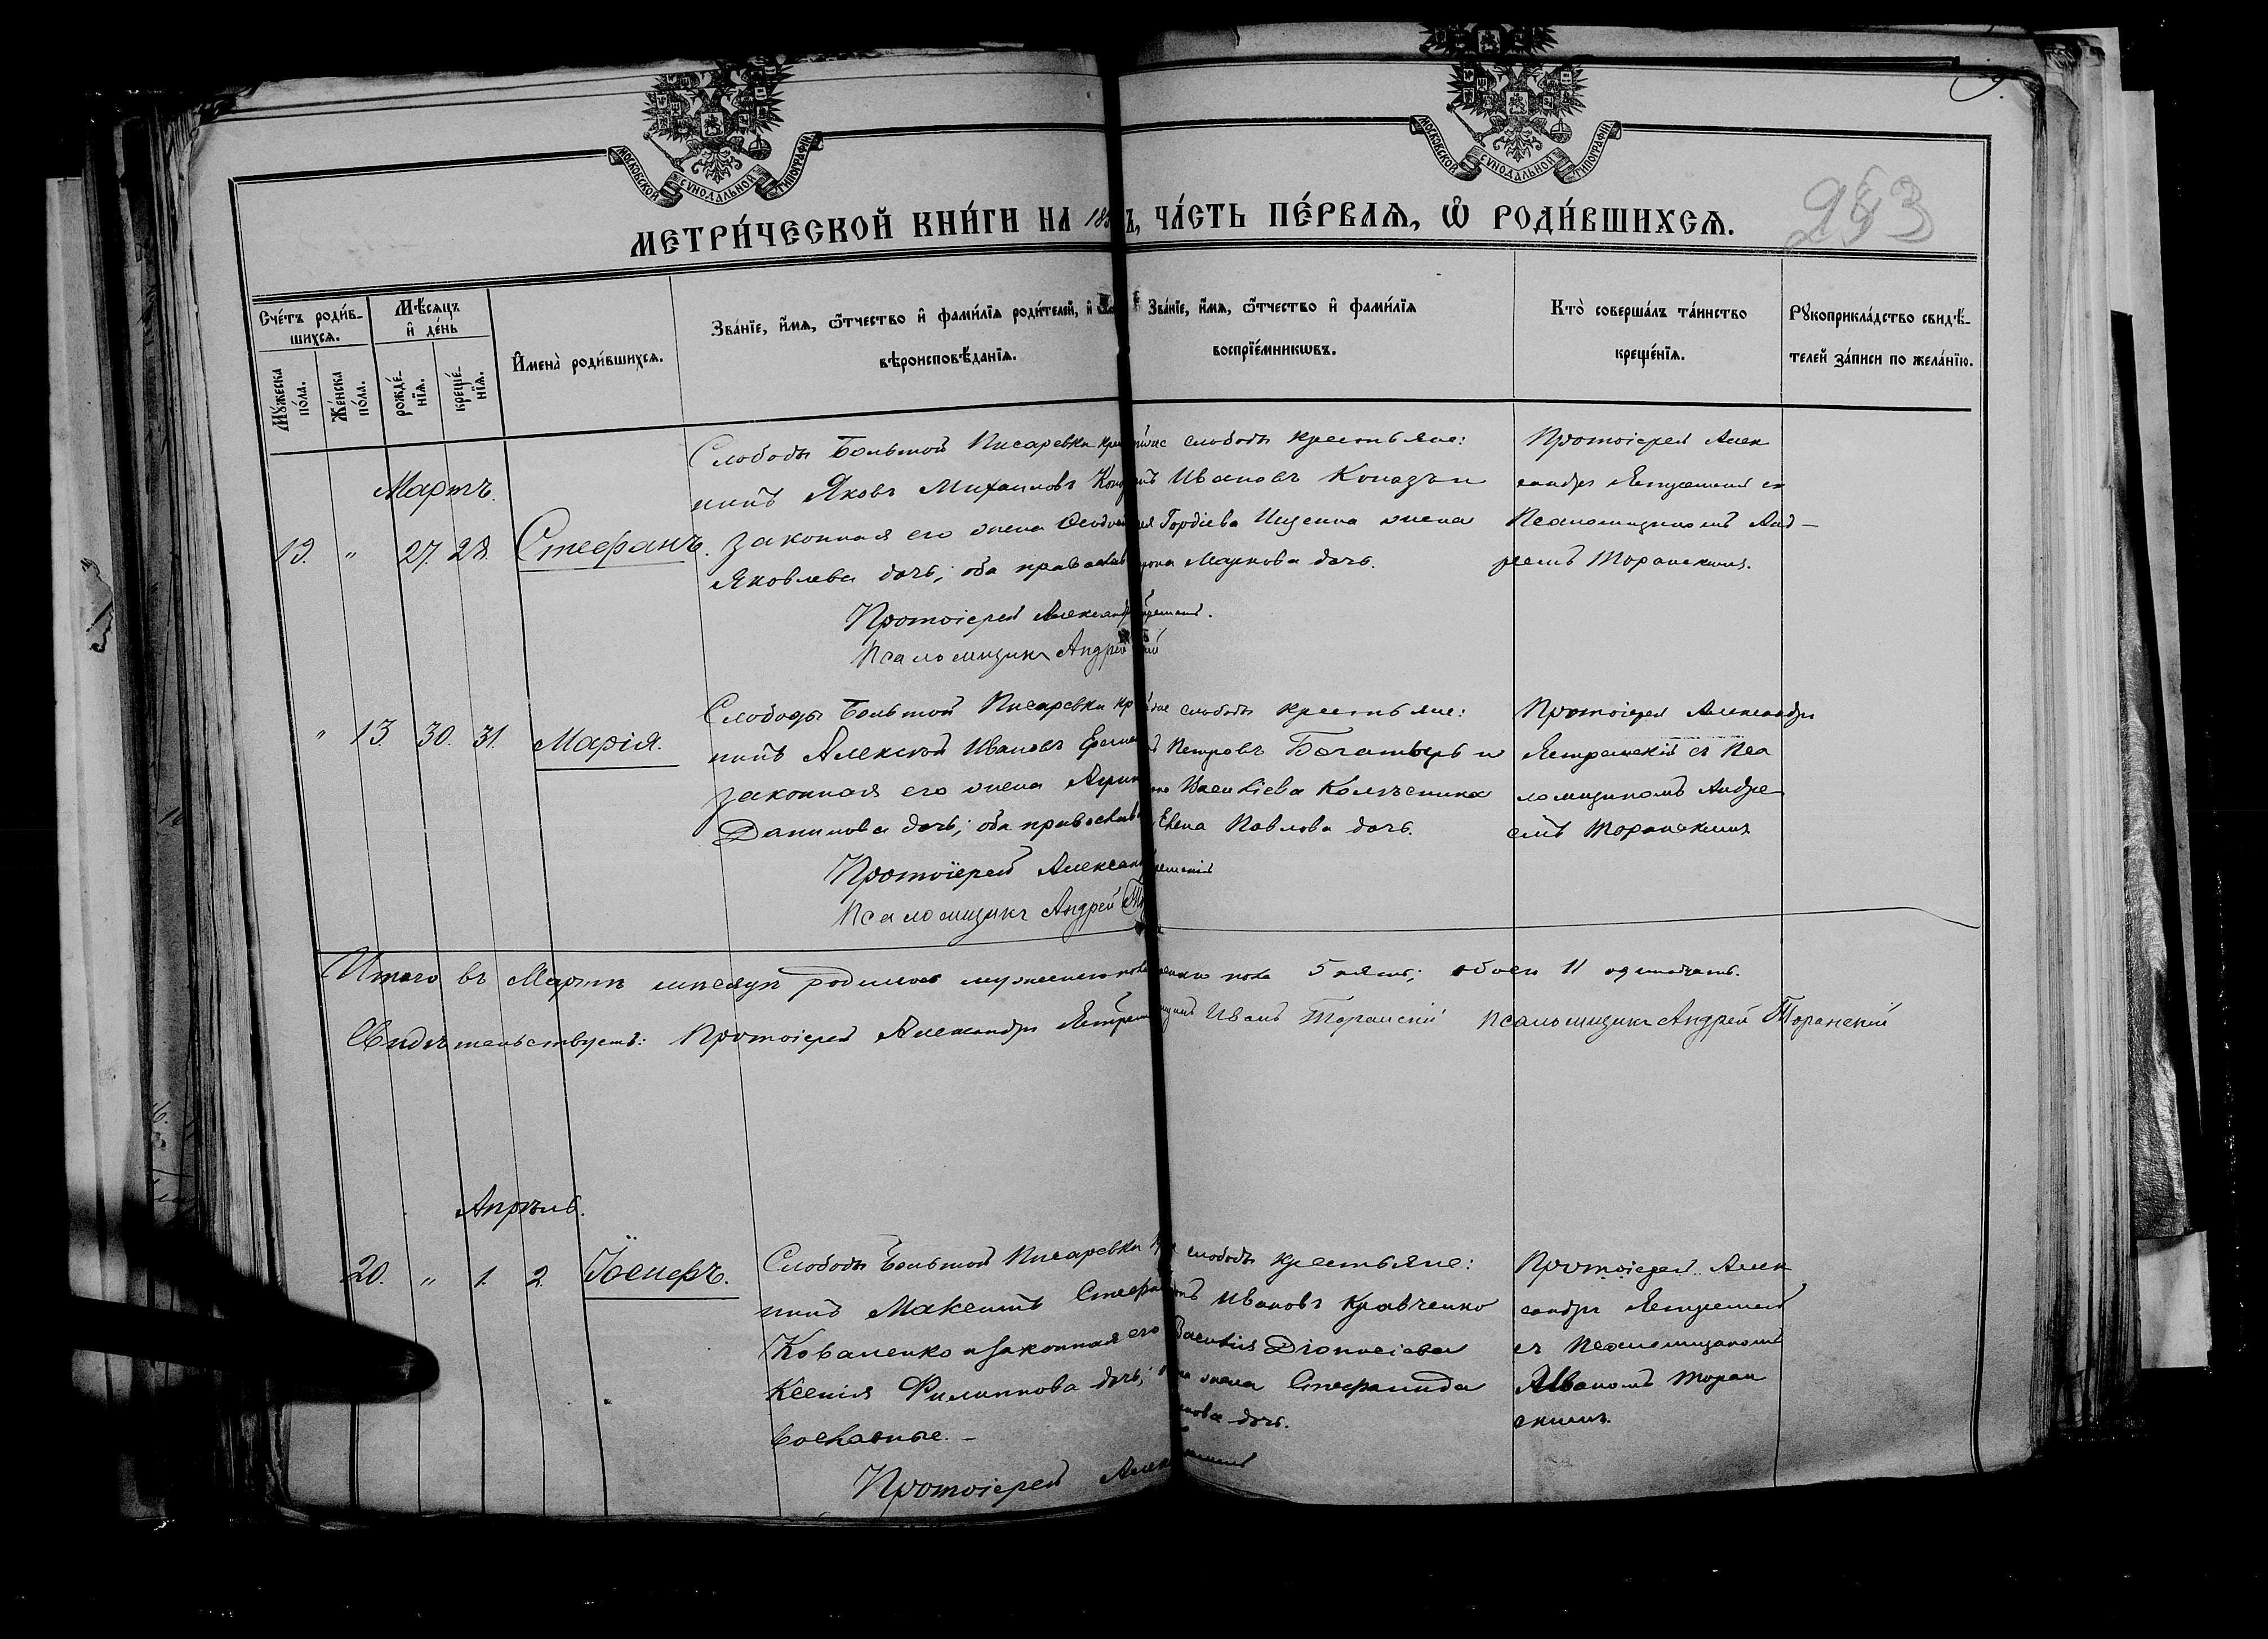 МОСКОВСКОЙ СѴНОДАЛЬНОЙ ТИПОГРАФІИ.
МОСКОВСКОЙ СѴНОДАЛЬНОЙ ТИПОГРАФІИ.
283
МЕТРИ́ЧЕСКОЙ КНИ́ГИ НА 18 Ъ, ЧА́СТЬ ПЕ́РВАѦ, Ѿ РОДИ́ВШИХСѦ.
Сче́тъ роди́в-
шихсѧ.
Мꙋ́жеска по́ла.
Же́нска по́ла.
Мѣ́сѧцъ и҆ де́нь
рожде́-нїѧ.
креще́-нїѧ.
И҆мена̀ роди́вшихсѧ.
Зва́нїе, и҆́мѧ, ѻ҆́тчество и҆ фами́лїѧ роди́телей, и҆
вѣроисповѣ́данїѧ.
Зва́нїе, и҆́мѧ, ѻ҆́тчество и҆ фами́лїѧ
воспрїе́мникѡвъ.
Кто̀ соверша́лъ та́инство
креще́нїѧ.
Рꙋкоприкла́дство свидѣ́-
телей за́писи по жела́нїю.
Мартъ.
19. " 27. 28. Стефанъ.
Слободы Большой Писаревки
нинъ Яковъ Михаиловъ
законная его жена
Яковлева дочь; оба православ
Протоіерей Александр
Псаломщикъ Андрей
слободы крестьяне:
Ивановъ Коназъ и
Гордіева Ищенка жена
Маркова дочь.
Протоіерей Алек
сандръ Ястремскій съ
Псаломщикомъ Анд-
реемъ Торанскимъ.
" 13. 30. 31. Марія.
Слободы Большой Писаревки
нинъ Алексѣй Ивановъ
законная его жена
Данилова дочь; оба православ
Протоіерей Александ
Псаломщикъ Андрей
слободы крестьяне:
Петровъ Богатырь и
Василіева Колѣсника
Елена Павлова дочь.
Протоіерей Александръ
Ястремскій съ Пса
ломщикомъ Андре
емъ Торанскимъ
Итого въ Мартѣ мѣсяцѣ родилось мужескаго пола женска пола 5 пять; обоего 11 одинадцать.
Свидѣтельствуетъ: Протоіерей Александръ Ястрем Иванъ Торанскій Псаломщикъ Андрей Торанскій
Апрѣль.
20. " 1. 2.
Слободы Большой Писаревки
нинъ Максимъ Стефа
Коваленко и законная его
Ксенія Филиппова дочь;
вославные. —
Протоіерей Алек
слободы крестьяне:
Ивановъ Кравченко
Василія Діонисіева
жена Стефанида
дочь.
Протоіерей Алек
сандръ Ястремскій
съ Псаломщикомъ
Иваномъ Торан
скимъ.